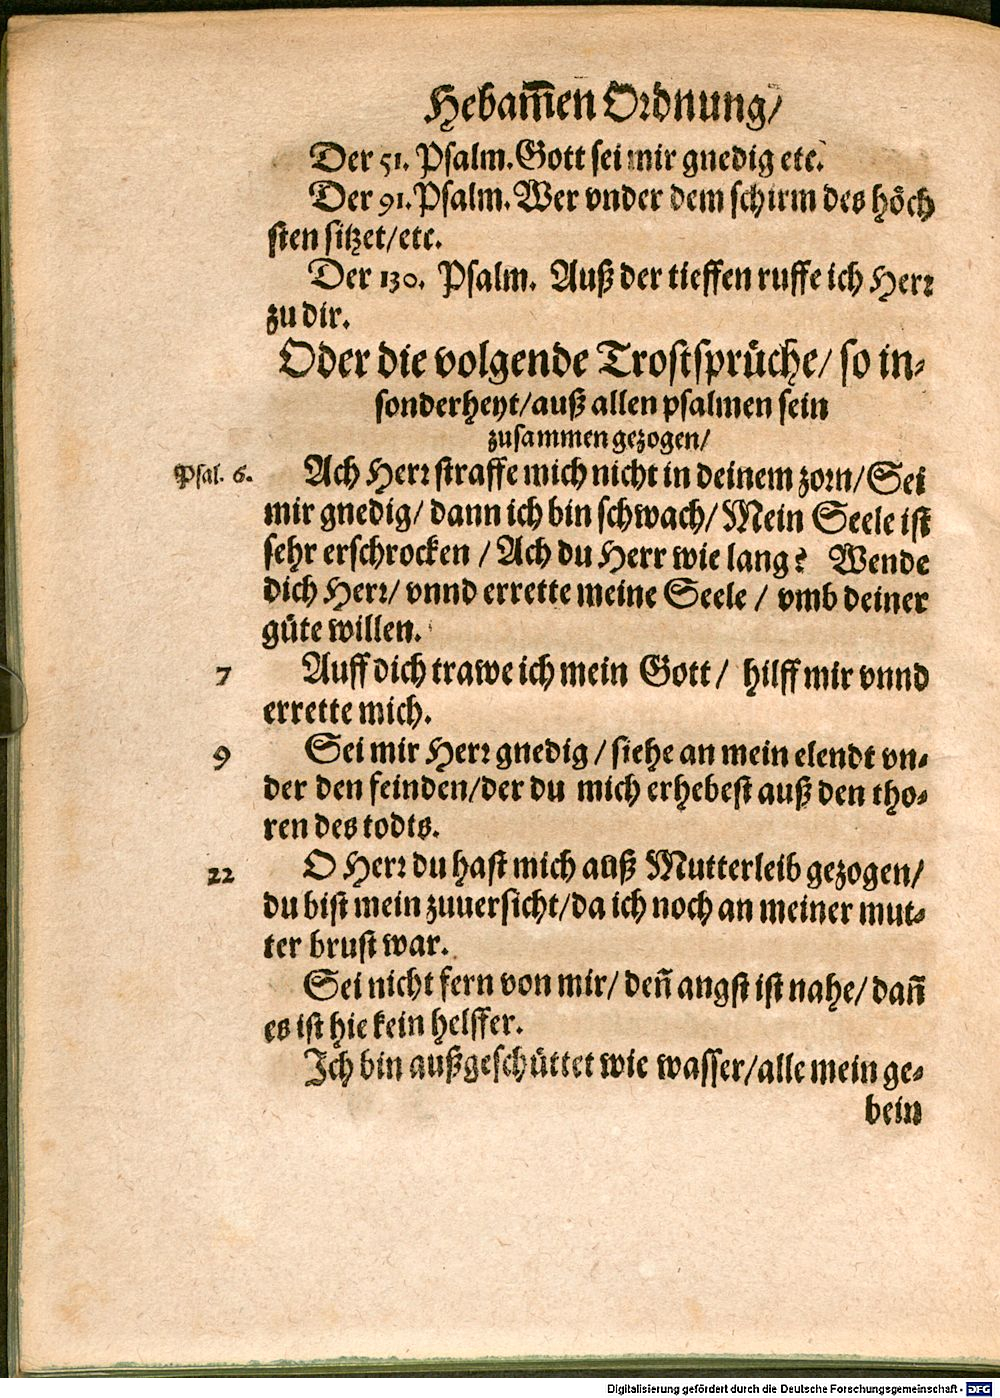 Hebam̄en Ordnung/
Der 51. Psalm. Gott sei mir gnedig etc.
Der 91. Psalm. Wer vnder dem schirm des hoͤch
sten sitzet/etc.
Der 130. Psalm. Auß der tieffen ruffe ich Herr
zu dir.
Oder die volgende Trostspruͤche/ so in-
sonderheyt/auß allen psalmen sein
zusammen gezogen/
Psal. 6. Ach Herr straffe mich nicht in deinem zorn/ Sei
mir gnedig/ dann ich bin schwach/ Mein Seele ist
sehr erschrocken / Ach du Herr wie lang? Wende
dich Herr/ vnnd errette meine Seele / vmb deiner
guͤte willen.
7 Auff dich trawe ich mein Gott / hilff mir vnnd
errette mich.
9 Sei mir Herr gnedig / siehe an mein elendt vn-
der den feinden/der du mich erhebest auß den tho-
ren des todts.
22 O Herr du hast mich auß Mutterleib gezogen/
du bist mein zuuersicht/da ich noch an meiner mut-
ter brust war.
Sei nicht fern von mir/ den̄ angst ist nahe/ dan̄
es ist hie kein helffer.
Ich bin außgeschüttet wie wasser/alle mein ge-
bein
Digitalisierung gefördert durch die Deutsche Forschungsgemeinschaft - DFG